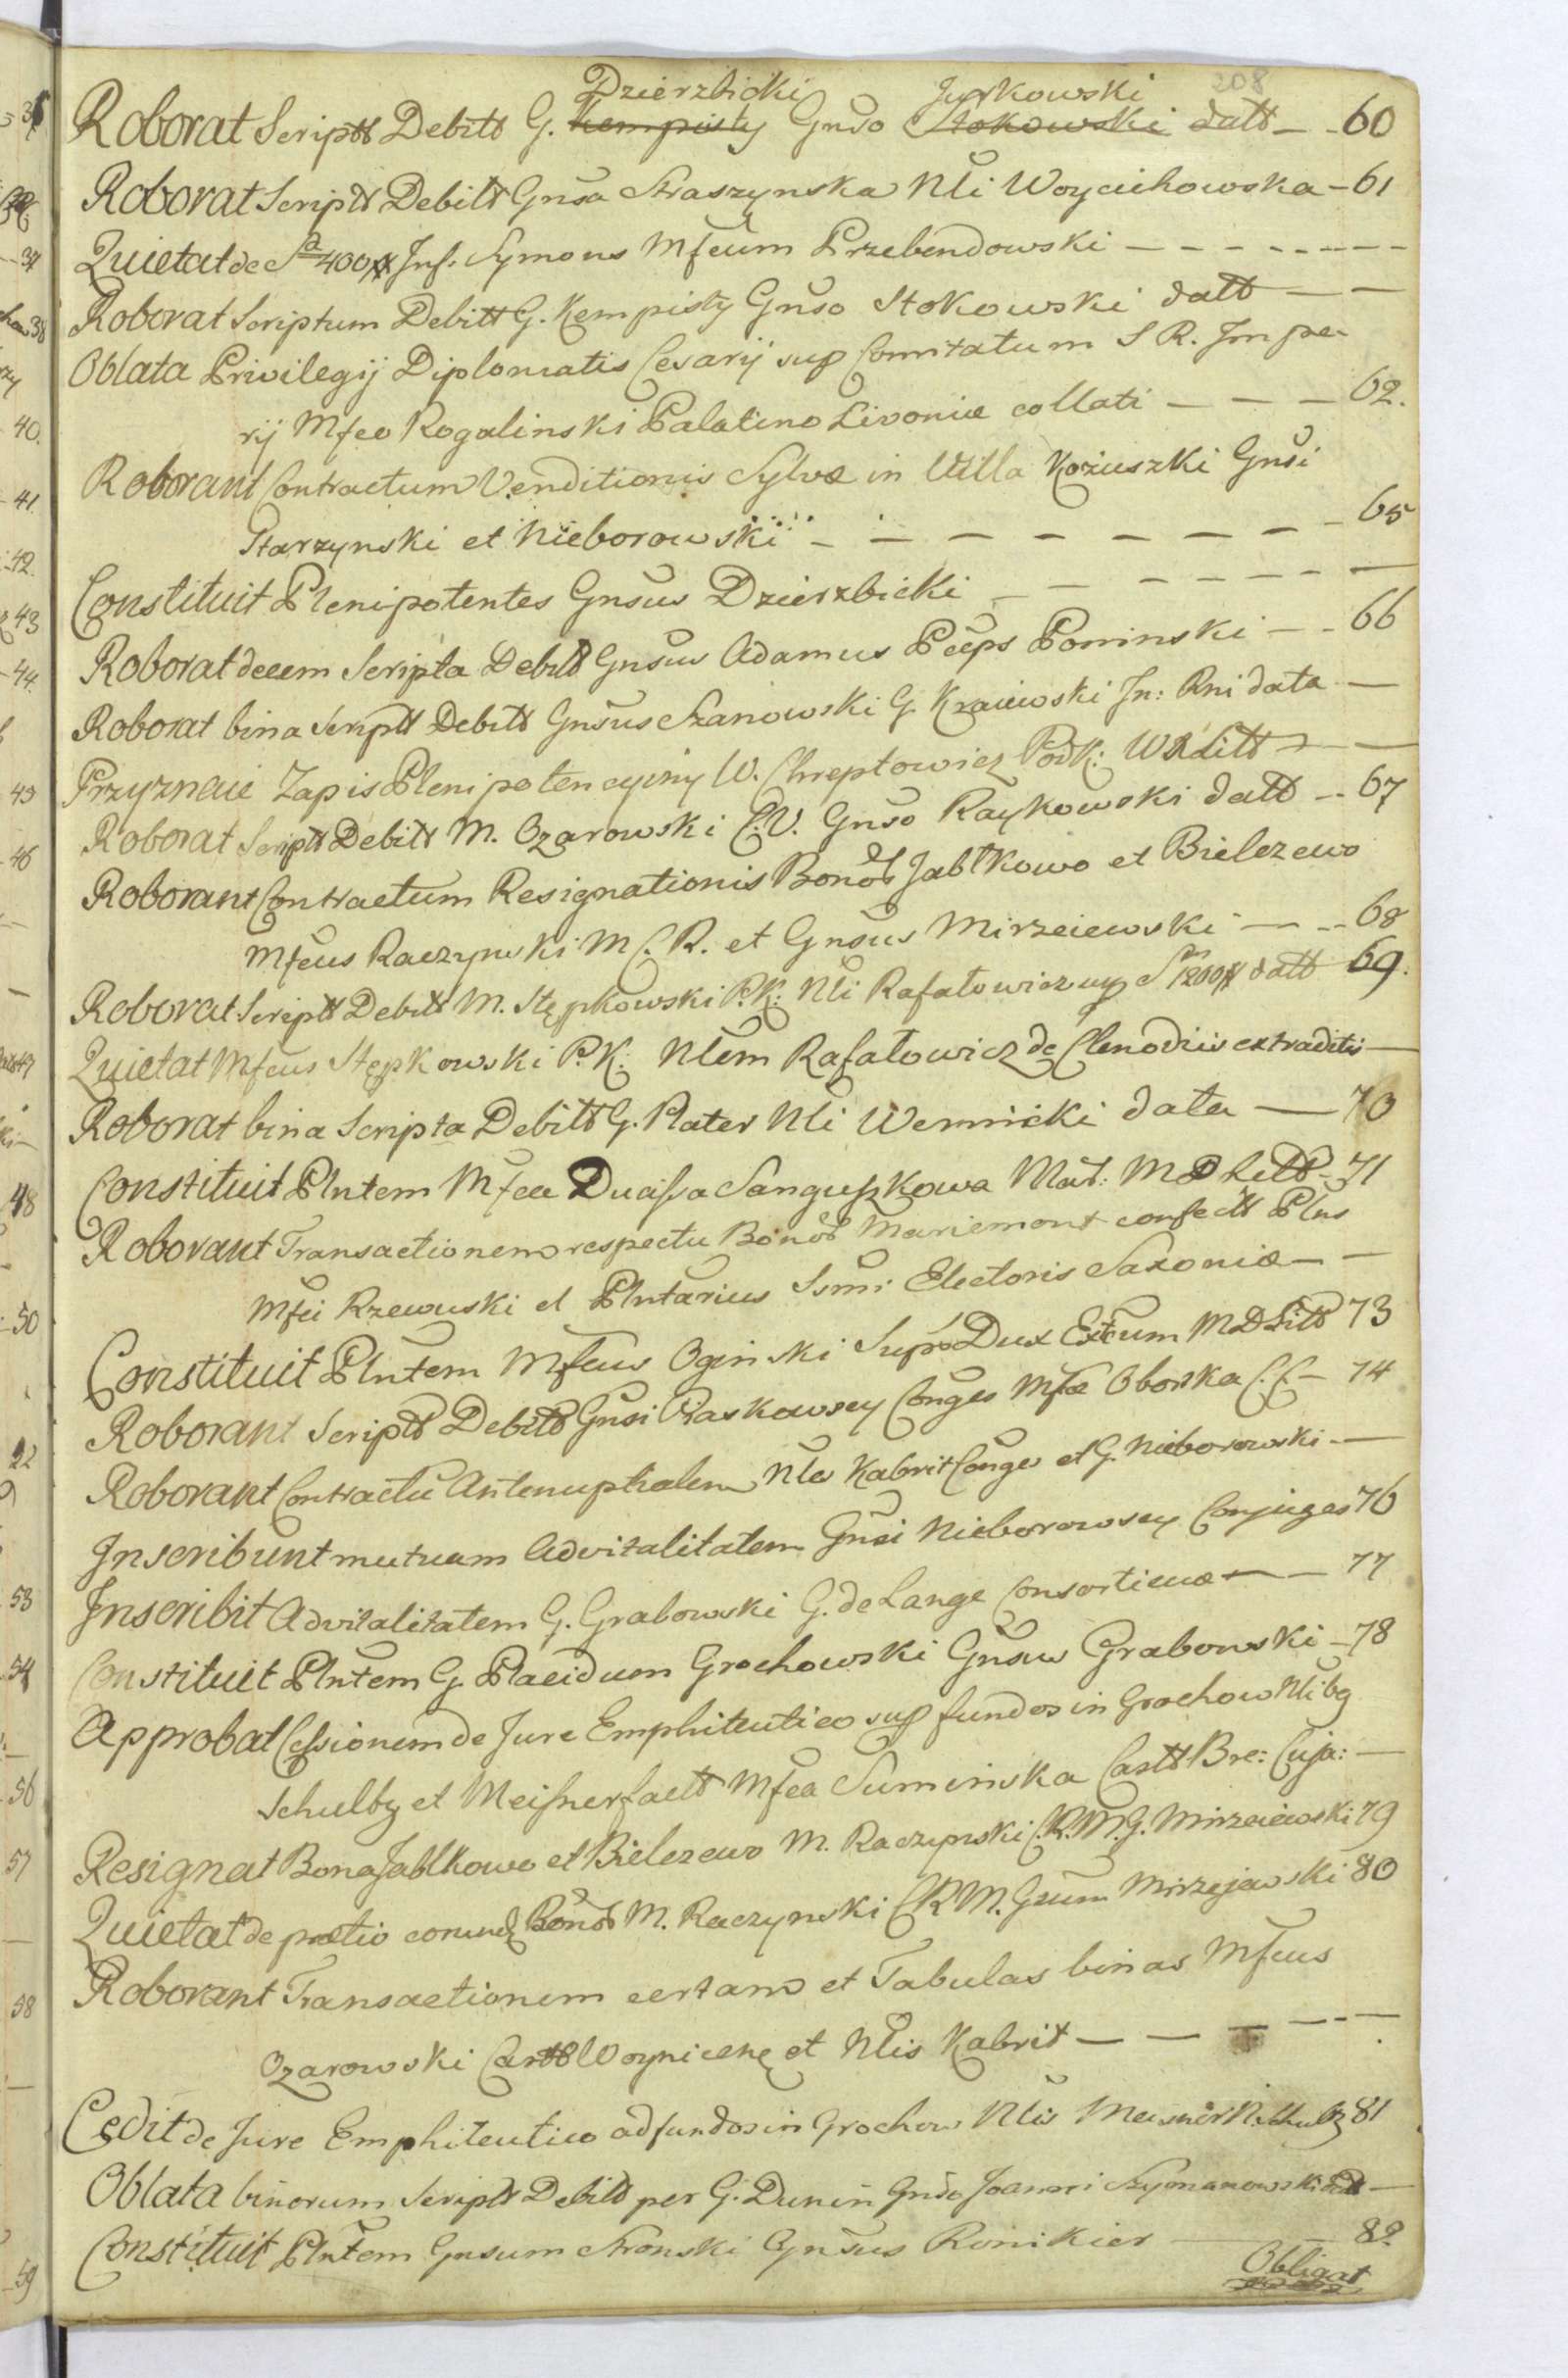 208
Dzierzbicki Jurkowski
Roborat Scriptt Debitt G. Kempisty Gnso Stokowski datt - - 60
Roborat Scriptt Debitt Gnsa Straszynska Nli Woyciehowska - 61
Quietat de Sa 400 # Inf. Symons Mfcum Przebendowski - - - - - - - -
Roborat Scriptum Debitt G. Kempisty Gnso Stokowski datt - -
Oblata Privilegij Diplomatis Cesarij sup Comitatum S R. Impe-
rij Mfco Rogalinski Palatino Livoniæ collati - - - - 62.
Roborant Contractum Venditionis Sylvæ in Villa Koziuszki Gnsi
Starzynski et Nieborowski - - - - - - - - 65
Constituit Plenipotentes Gnsus Dzierzbicki - - - - - - -
Roborat decem Scripta Debitt Gnsus Adamus Pceps Poninski - - 66
Roborat bina Scriptt Debitt Gnsus Szanowski G. Kraiewski In: Rni data -
Przyznaie Zapis Plenipotencyiny W. Chreptowicz Podk: WXLitt - -
Roborat Scriptt Debitt M. Ozarowski C.V. Gnso Raykowski datt - - 67
Roborant Contractum Resignationis Bonor Jabłkowo et Bielezewo
Mfcus Raczynski M C. R. et Gnsus Mirzeiewski - - - 68
Roborat Scriptt Debitt M. Stępkowski P.K: Nli Rafałowicz sup S 1200 # datt 69.
Quietat Mfcus Stępkowski P.K: Nlem Rafałowicz de Clenodiis extraditis -
Roborat bina Scripta Debitt G. Plater Nli Wernicki data - 70
Constituit Plntem Mfca Ducissa Sanguszkowa Mar: M D Litt - 71
Roborant Transactionem respectu Bonor Mariemont confectt Plns
Mfci Rzewuski et Plntarius Ssmi Electoris Saxoniæ - -
Constituit Plntem Mfcus Oginski Supr Dux Exercituum MDLitt 73
Roborant Scriptt Debitt Gnsi Piaskowscy Conges Mfæ Oborska C.C. - 74
Roborant Contractu Antenuptialem Nles Kabrit Conges et G. Nieborowski - -
Inscribunt mutuam Advitalitatem Gnsi Nieborowscy Conjuges 76
Inscribit Advitalitatem G. Grabowski G. de Lange Consorti suæ - - 77
Constituit Plntem G. Placidum Grochowski Gnsus Grabowski - 78
Approbat Cessionem de Jure Emphiteutico sup fundos in Grochow Nlibg
Schultz et Meisner factt Mfca Suminska Castt Bre: Cuja: -
Resignat Bona Jablkowo et Bielezewo M. Raczynski C.R.M. G. Mirzeiewski 79
Quietat de pretio eorund Bonor M. Raczynski CRM. Gsum Mirzejewski 80
Roborant Transactionem certam et Tabulas binas Mfcus
Ozarowski Castt Woynicens et Nlis Kabrit - - - - -
Cedit de Jure Emphiteutico ad fundos in Grochow Nlis Meisner N. Schultz 81
Oblata binorum Scriptt Debitt per G. Dunin Gnso Joanni Szymanowski datt -
Constituit Plntem Gnsum Stronski Gnsus Ronikier - 82
Obligat